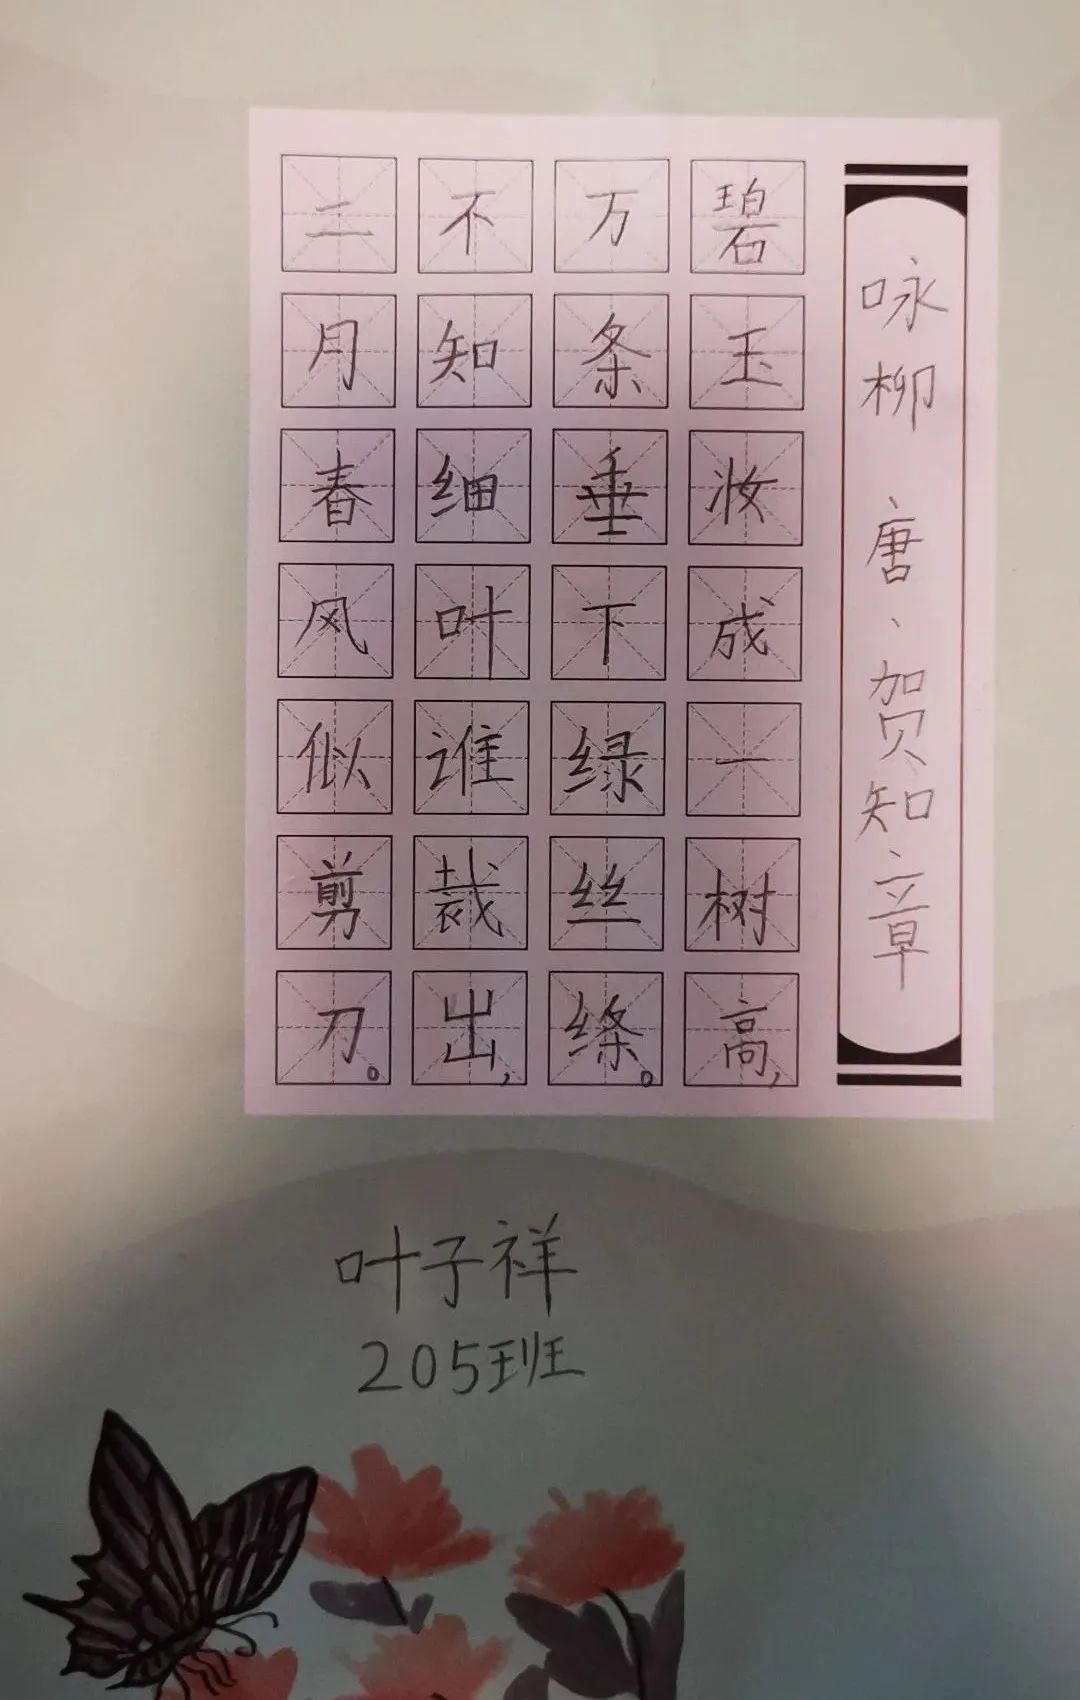 咏柳 唐、贺知章
碧玉妆成一树高，
万条垂下绿丝绦。
不知细叶谁裁出，
二月春风似剪刀。
叶子祥
205班